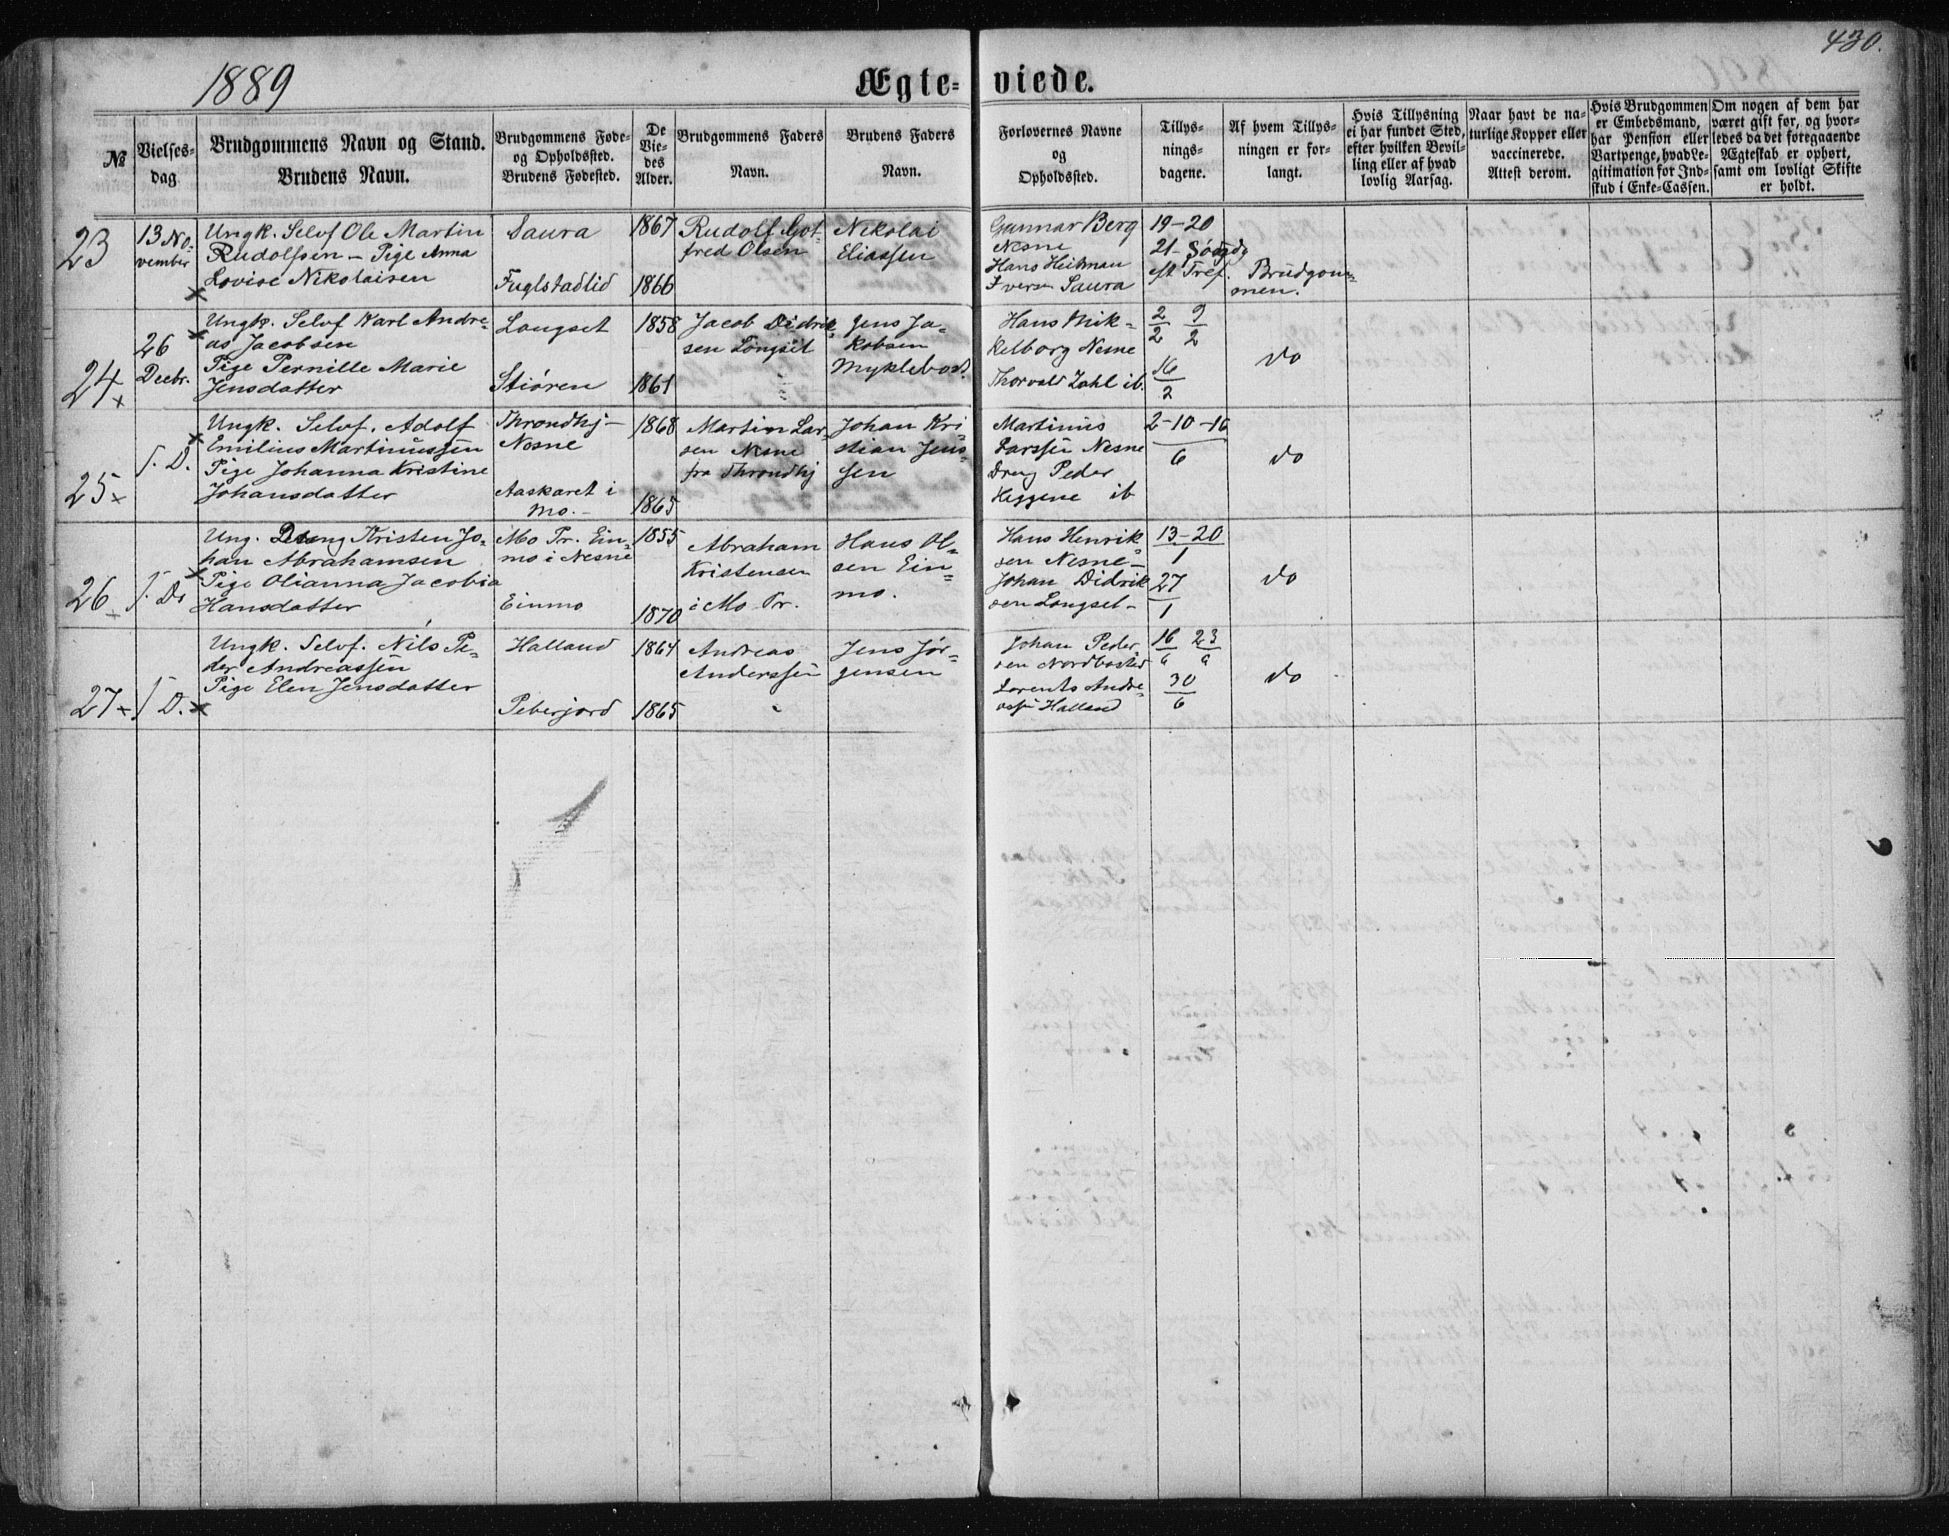 430.
1889
Ægte- viede.
№
Vielses-
dag.
Brudgommens Navn og Stand.
Brudens Navn.
Brudgommens Føde-
og Opholdssted.
Brudens Fødested.
De
Vie-
des
Alder.
Brudgommens Faders
Navn.
Brudens Faders
Navn.
Forlovernes Navne
og
Opholdssted.
Tillys-
nings-
dagene.
Af hvem Tillys-
ningen er for-
langt.
Hvis Tillysning
ei har fundet Sted,
efter hvilken Bevil-
ling eller af hvad
lovlig Aarsag.
Naar havt de na-
turlige Kopper eller
vaccinerede.
Attest derom.
Hvis Brudgommen
er Embedsmand,
har Pension eller
Vartpenge, hvad Le-
gitimation for Ind-
skud i Enke-Cassen.
Om nogen af dem har
været gift før, og hvor-
ledes da det foregaaende
Ægteskab er ophørt,
samt om lovligt Skifte
er holdt.
23
13 No-
vember
Ungk. Selvf Ole Martin
Rudolfsen - Pige Anna
Lovise Nikolaisen
Saura
Fuglstadlid
1867
1866
Rudolf Got-
fred Olsen
Nikolai
Eliassen
Gunnar Berg
Nesne
Hans Heitman
Iversen Saura
19-20
21- Søgd
eft Tref.
Brudgom-
men.
24
26
Decbr.
Ungk. Selvf Karl Andre-
as Jacobsen
Pige Pernille Marie
Jensdatter
Longset
Stiøren
1858
1861
Jacob Didrik-
sen Longset
Jens Ja-
kobsen
Myklebost
Hans Mik-
kelborg Nesne
Thorvald Zahl ib.
2 9
2 2
16
2
do
25
S. D.
Ungk. Selvf. Adolf
Emilius Martinussen
Pige Johanna Kristine
Johansdatter
Throndhj-
Nesne
Aaskaret i
Mo.-
1868
1865
Martin Lar-
sen Nesne
fra Throndhj
Johan Kri-
stian Jens-
sen
Martinus
Larssen Nesne
Dreng Peder
Heggene ib
2-10-16
6
do
26
S. D.
Ung. Dreng Kristen Jo-
han Abrahamsen
Pige Olianna Jacobia
Hansdatter
Mo Pr. Ein-
mo i Nesne
Einmo
1855
1870
Abraham
Kristensen
i Mo Pr.
Hans Ol-
sen Ein-
mo.
Hans Henrik-
sen Nesne-
Johan Didrik
sen Longset-
13-20
1
27
1
do
27
S D.
Ungk. Selvf. Nils Pe-
der Andreassen
Pige Elen Jensdatter
Halland
Peterjord
1864
1865
Andreas
Anderssen
Jens Jør-
gensen
Johan Peder-
sen
Lorents Andre-
assen Halland
16 23
6 6
30
6
do